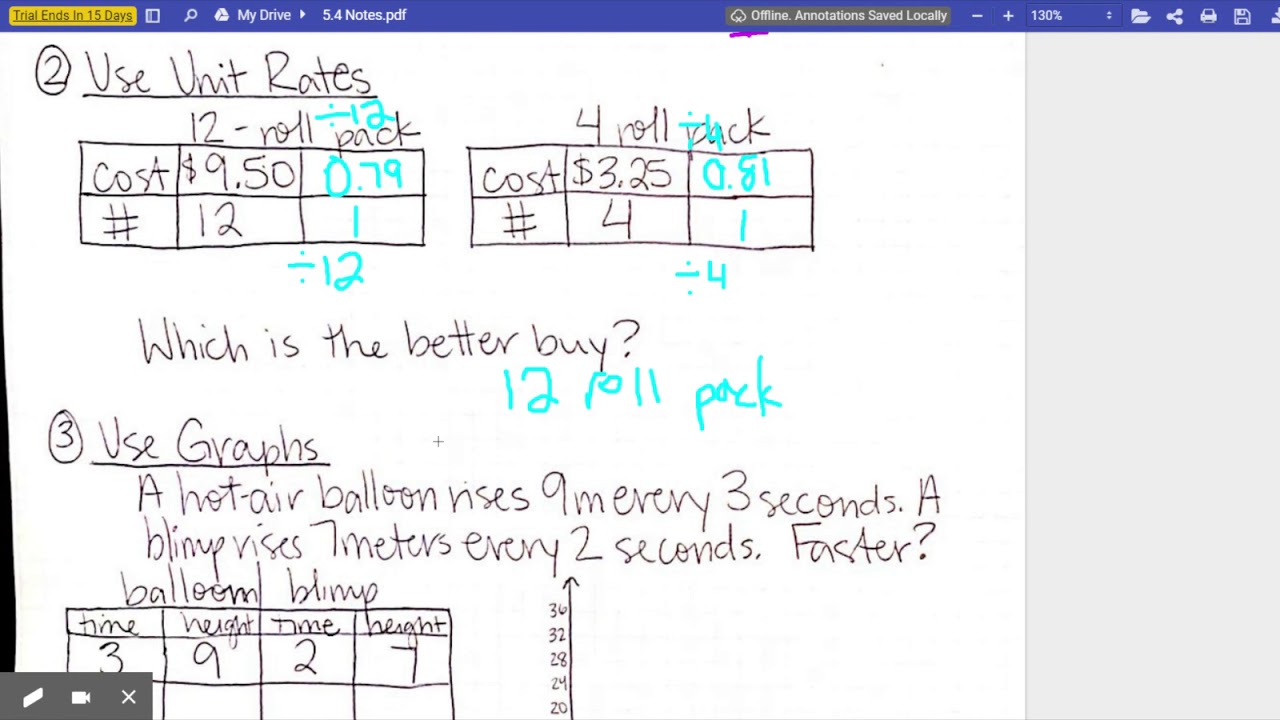 Trial Ends In 15 Days My Drive 5.4 Notes.pdf Offline. Annotations Saved Locally 130%
② Use Unit Rates
÷12 ÷4
12-roll pack 4 roll pack
cost $9.50 0.79 cost $3.25 0.81
# 12 1 # 4 1
÷12 ÷4
Which is the better buy?
12 roll pack
③ Use Graphs
A hot-air balloon rises 9m every 3 seconds. A
blimp rises 7meters every 2 seconds. Faster?
balloom blimp
time height time height
3 9 2 7
36
32
28
24
20